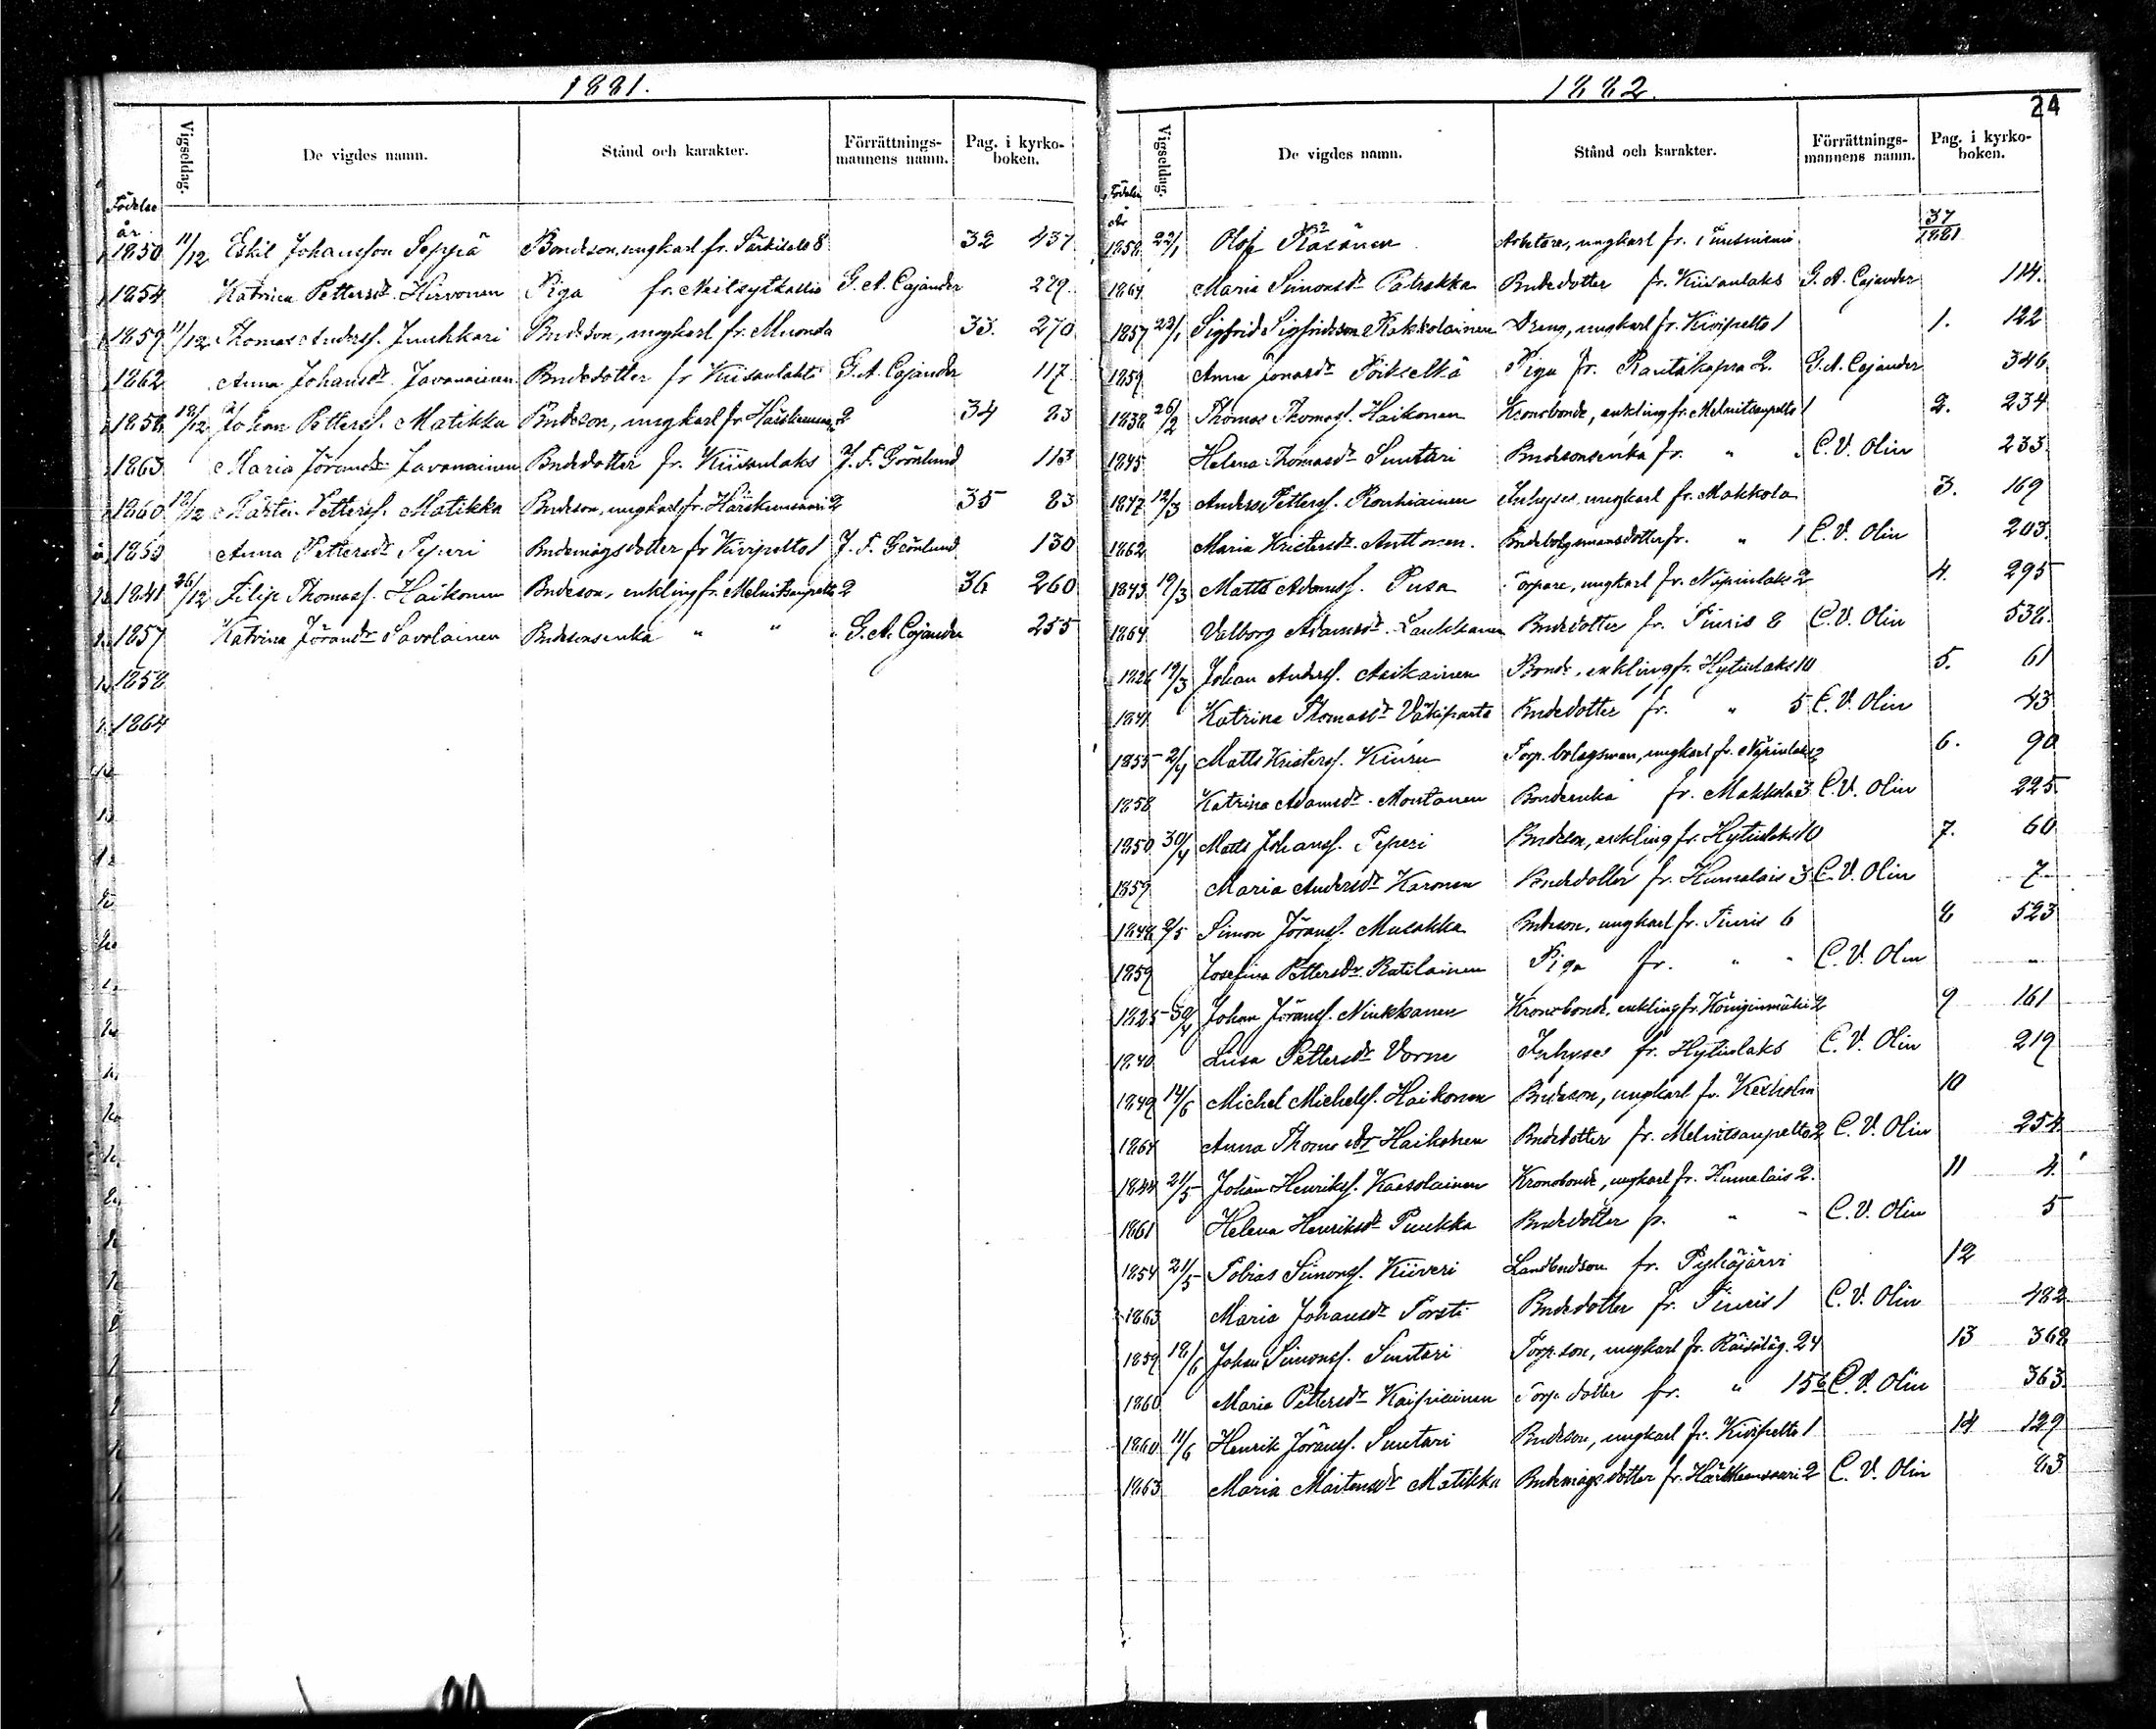 1881.
Vigseldag. De vigdes namn. Stånd och karakter. Förrättnings-mannens namn. Pag. i kyrko-boken.
Födelse år
1850 11/12 Eskil Johansson Seppä Bondeson, ungkarl fr. Särkisalo 8 32 437
1854 Katrina Pettersdr Hirvonen Piga fr. G. A. Cajander 279
1859 11/12 Thomas Andersf. Juuhkari Bndeson, ungkarl fr. Muonda 33. 270
1862 Anna Johansdr Javanainen Bndedotter fr Kiisanlahti G. A. Cajander 117
1858 18/12 Johan Pettersf. Matikka Bndeson, ungkarl fr 2 34 83
1863 Maria Jöransdr Javanainen Bndedotter fr. Kiisanlaks J. F. Grönlund 113
1860 18/12 Mårten Pettersf. Matikka Bndeson, ungkarl fr. Härskiinsaari 2 35 83
Anna Pettersdr Peperi Bndemågsdotter fr Kivipelto 1 J. F. Grönlund 130
1841 26/12 Filip Thomasf. Haikonen Bndeson, enkling fr. Melnitsanpelto 2 36 260
1857 Katrina Jöransdr Savolainen Bndesonsenka " " " G. A. Cajander 255
1858
1864
1882.
24
Vigseldag. De vigdes namn. Stånd och karakter. Förrättnings-mannens namn. Pag. i kyrko-boken.
Födelse år
1858 22/1 Olof Räsänen Arbetare, ungkarl fr. 37/1881
1864 Maria Simonsdr Patrakka Bndedotter fr. Kiisanlaks G. A. Cajander 114.
1857 22/1 Sigfrid Sigfridsson Kekkolainen Dräng, ungkarl fr. Kivipelto 1 1. 122
1859 Anna Jonasdr Poikselkä Piga fr. Rautakapra 2. G. A. Cajander 346
1838 26/2 Thomas Thomasf. Haikonen Kronobonde, enkling fr. Melnitsanpelto 1 2. 234
1845 Helena Thomasdr Suutari Bndesonsenka fr. " " C. V. Olin 233.
1847 12/3 Anders Pettersf. Rouhiainen Inhyses, ungkarl fr. Makkola 3. 169
1862 Maria Kristersdr Anttonen. Bndebolagsmansdotter fr. " 1 C. V. Olin 203.
1843 19/3 Matts Adamsf. Pusa Torpare, ungkarl fr. Näpinlaks 2 4. 295
1864 Valborg Adamsdr Laukkanen Bndedotter fr. Tiuris 8 C. V. Olin 538.
1826 19/3 Johan Andersf. Asikainen Bonde, enkling fr. Hytinlaks 10 5. 61
1841 Katrina Thomasdr Väkiparta Bndedotter fr. " 5 C. V. Olin 43
1855 2/4 Matts Kristersf. Kiuru Torp. bolagsman, ungkarl fr. Näpinlaks 2 6. 90
1858 Katrina Adamsdr Montonen Bondeenka fr. Makkola 3 C. V. Olin 225
1850 30/4 Matts Johansf. Peperi Bndeson, enkling fr. Hytinlaks 10 7. 60
1859 Maria Andersdr Karonen Bondedotter fr. Humalais 3 C. V. Olin 7
1848 2/5 Simon Jöransf. Musakka Bndeson, ungkarl fr. Tiuris 6 8 523
1859 Josefina Pettersdr Ratilainen Piga fr. " " C. V. Olin "
1825 30/4 Johan Jöransf. Niukkanen Kronobonde, enkling fr. Hönginmäki 2 9 161
1840 Lisa Pettersdr Vorne Inhyses fr. Hytinlaks C. V. Olin 219
1849 14/6 Michel Michelsf. Haikonen Bndeson, ungkarl fr. Kexholm 10
1864 Anna Thomasdr Haikonen Bndedotter fr. Melnitsanpelto 2 C. V. Olin 254
1844 21/5 Johan Henriksf. Kaasolainen Kronobonde, ungkarl fr. Humalais 2. 11 4.
1861 Helena Henriksdr Puukka Bndedotter fr. " " C. V. Olin 5
1854 21/5 Tobias Simonsf. Kiiveri Landbndson fr. Pyhäjärvi 12
1863 Maria Johansdr Torsti Bndedotter fr. Tiuris 1 C. V. Olin 482.
1859 18/6 Johan Simonsf. Suutari Torp. son, ungkarl fr. Räisälä g. 24 13 368
1860 Maria Pettersdr Kaipiainen Torp dotter fr. " 156 C. V. Olin 363.
1860 11/6 Henrik Jöransf. Suutari Bndeson, ungkarl fr. Kivipelto 1 14 129
1863 Maria Mårtensdr Matikka Bndemågsdotter fr. Härskiinsaari 2 C. V. Olin 83